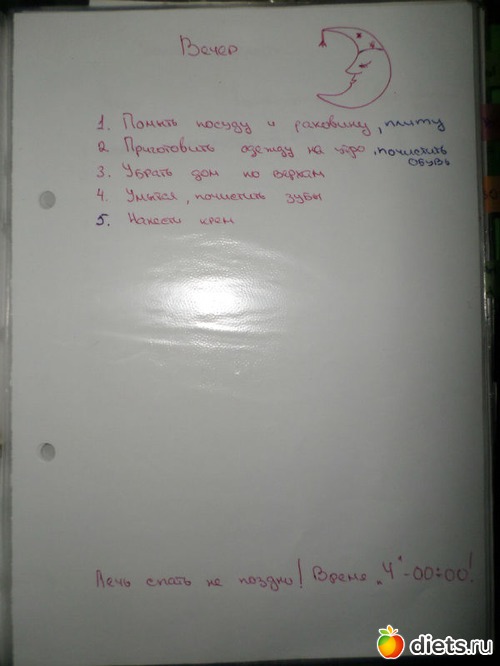 Вечер
1. Помыть посуду и раковину, плиту
2. Приготовить одежду на утро, почистить
обувь
3. Убрать дом по верхам
4. Умыться, почистить зубы
5. Нанести крем
Лечь спать не поздно! Время "Ч" - 00:00!
diets.ru